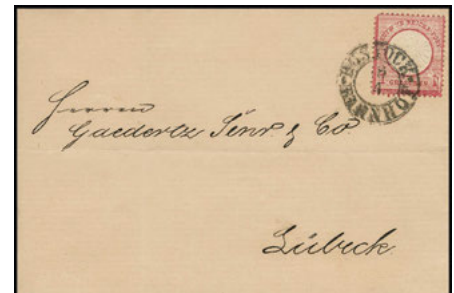 ROSTOCK BAHNHOF
Herren
Gaedertz Senr. & Co
Lübeck.